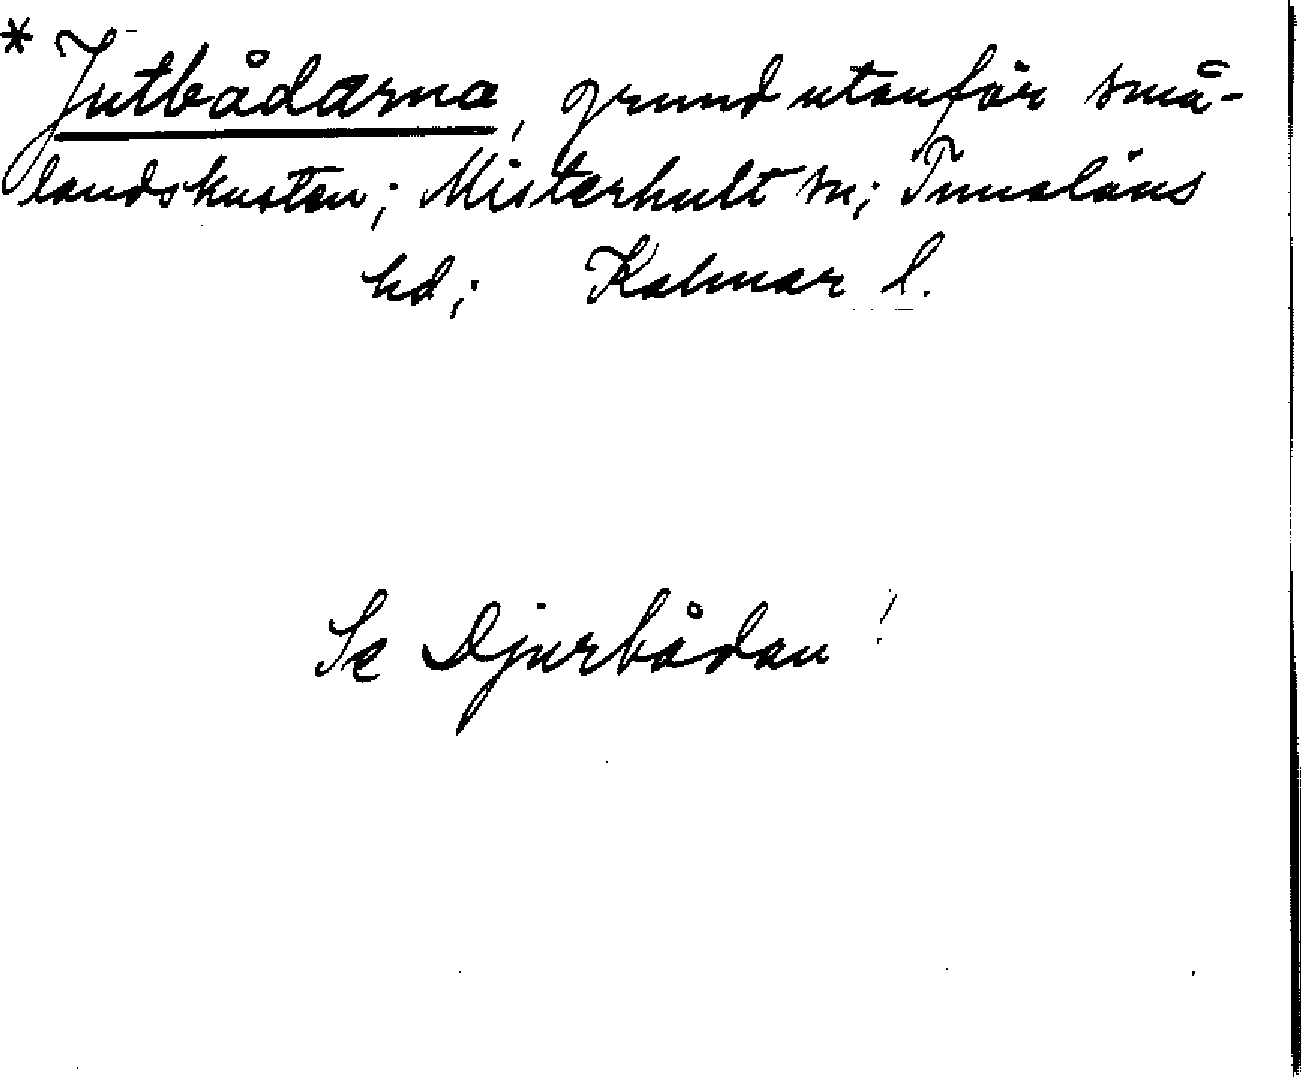 * Jutbådarna, grund utanför små-
landskusten; Misterhult sn; Tunaläns
hd; Kalmar l.
Se Djurbådan!